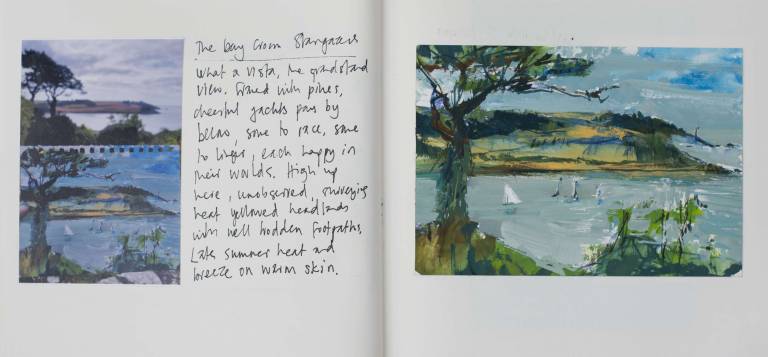 The bay from Stangaars
What a vista, the grandstand
view. Framed with pines,
cheerful yachts pass by
below, some to race, some
to linger, each happy in
their worlds. High up
here, unobserved, surveying
heat yellowed headlands
with well trodden footpaths.
Late summer heat and
breeze on warm skin.